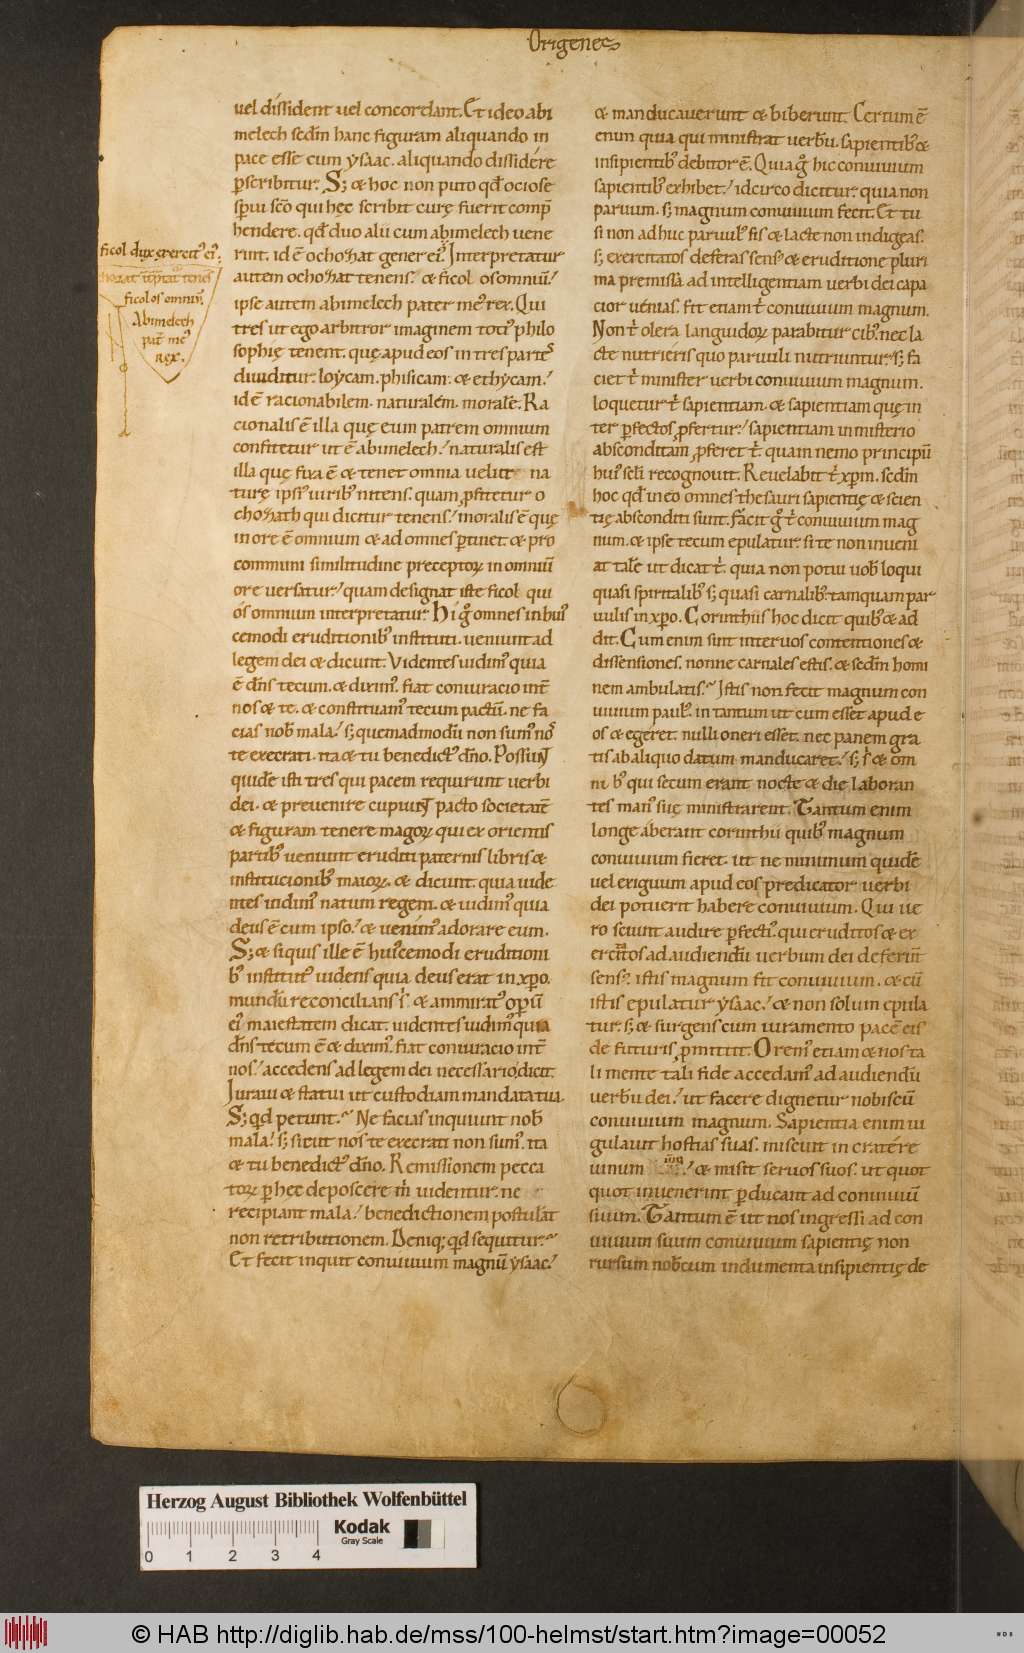 Origenes
uel dissident uel concordant. Et ideo abi
melech scdm̄ hanc figuram aliquando in
pace esse cum ysaac. aliquando dissidere
ꝑscribitur. S; & hoc non puto qđ ociose
sp̄ui sc̄o qui hęc scribit curę fuerit comp̄
hendere. qđ duo alii cum abimelech uene
runt. id ē ochozat gener ei᾽. Interpretatur
autem ochozat tenens. & ficol os omniū.
ipse autem abimelech pater me᾽ rex. Qui
tres ut ego arbitror imaginem toti᾽ philo
sophię tenent. quę apud eos in tres partes
diuiditur. loycam. phisicam. & ethycam.
id ē racionabilem. naturalem. moralē. Ra
cionalis ē illa quę eum patrem omnium
confitetur ut ē abimelech. naturalis est
illa quę fixa ē & tenet omnia uelut na
turę ipsi᾽ uirib᾽ nitens. quam ꝓfitetur o
chozath qui dicitur tenens. moralis ē quę
in ore ē omnium & ad omnes ꝑtinet. & pro
communi similitudine preceptoꝝ in omniū
ore uersatur. quam designat iste ficol qui
os omnium interpretatur. Hi g̊ omnes in hui᾽
cemodi eruditionib᾽ instituti. ueniunt ad
legem dei & dicunt. Videntes uidim᾽ quia
ē dn̄s tecum. & dixim᾽. fiat coniuracio int̄
nos & te. & constituam᾽ tecum pactū. ne fa
cias nob̄ mala. s; quemadmodū non sum᾽ nos
te execrati. ita & tu benedict᾽ a dn̄o. Possunt
quidē isti tres qui pacem requirunt uerbi
dei. & preuenire cupiunt pacto societatē
& figuram tenere magoꝝ qui ex orientis
partib᾽ ueniunt eruditi paternis libris &
institucionib᾽ maioꝝ. & dicunt. quia uide
ntes uidim᾽ natum regem. & uidim᾽ quia
deus ē cum ipso. & uenim᾽ adorare eum.
S; & siquis ille ē hui᾽cemodi eruditioni
b᾽ institut᾽ uidens quia deus erat in xp̄o.
mundū reconcilians s̄. & ammirat᾽ opum
ei᾽ maiestatem dicat. uidentes uidim᾽ quia
dn̄s tecum ē & dixim᾽. fiat coniuracio int̄
nos. accedens ad legem dei necessario dicit.
Iuraui & statui ut custodiam mandata tua.
S; qđ petunt. Ne facias inquiunt nob̄
mala. s; sicut nos te execrati non sum᾽. ita
& tu benedict᾽ a dn̄o. Remissionem pecca
toꝝ ꝑ hec deposcere m̄ uidentur. ne
recipiant mala. benedictionem postulāt
non retributionem. Deniq; qđ sequitur.
Et fecit inquit conuiuium magnū ysaac.
ficol dux exercit᾽ ei᾽.
ficol os omniū.
Abimelech
pat̄ me᾽
rex.
& manducauerunt & biberunt. Certum ē
enim quia qui ministrat uerbū. sapientib᾽ &
insipientib᾽ debitor ē. Quia g̊ hic conuiuium
sapientib᾽ exhibet. idcirco dicitur. quia non
paruum. s; magnum conuiuium fecit. Et tu
si non adhuc paruul᾽ sis & lacte non indigeas.
s; exercitatos defferas sens᾽ & eruditione pluri
ma premissa. ad intelligentiam uerbi dei capa
cior uenias. fit etiam t̄ conuiuium magnum.
Non t̄ olera languidoꝝ parabitur cib᾽. nec la
cte nutrieris quo paruuli nutriuntur. s; fa
ciet t̄ minister uerbi conuiuium magnum.
loquetur t̄ sapientiam. & sapientiam quę in
ter ꝑfectos ꝓfertur. sapientiam in misterio
absconditam ꝓferet t̄. quam nemo principū
hui᾽ sc̄li recognouit. Reuelabit t̄ xp̄m. scdm̄
hoc qđ in eo omnes thesauri sapientię & scien
tię absconditi sunt. Facit g̊ t̄ conuiuium mag
num. & ipse tecum epulatur. si te non inueni
at talē ut dicat t̄. quia non potui uob̄ loqui
quasi spiritalib᾽ s; quasi carnalib᾽. tamquam par
uulis in xp̄o. Corinthiis hoc dicit quib᾽ & ad
dit. Cum enim sint inter uos contentiones &
dissensiones. nonne carnales estis. & scdm̄ homi
nem ambulatis. Istis non fecit magnum con
uiuium paul᾽. in tantum ut cum esset apud e
os & egeret. nulli oneri esset. nec panem gra
tis ab aliquo datum manducaret. s; s̄ & om
nib᾽ qui secum erant nocte & die laboran
tes man᾽ suę ministrarent. Tantum enim
longe aberant corinthii quib᾽ magnum
conuiuium fieret. ut ne minimum quidē
uel exiguum apud eos predicator uerbi
dei potuerit habere conuiuium. Qui ue
ro sciunt audire ꝑfecti᾽. qui eruditos & ex
ercitatos ad audiendū uerbum dei deferunt
sens᾽. istis magnum fit conuiuium. & cū
istis epulatur ysaac. & non solum epula
tur. s; & surgens cum iuramento pacē eis
de futuris ꝓmittit. Orem᾽ etiam & nos ta
li mente tali fide accedam᾽ ad audiendū
uerbū dei. ut facere dignetur nobiscū
conuiuium magnum. Sapientia enim iu
gulauit hostias suas. miscuit in cratere
uinum & misit seruos suos. ut quot
quot inuenerint ꝑducant ad conuiuiū
suum. Tantum ē ut nos ingressi ad con
uiuium suum conuiuium sapientię non
rursum nobiscum indumenta insipientię de
Herzog August Bibliothek Wolfenbüttel
Kodak
Gray Scale
0 1 2 3 4
© HAB http://diglib.hab.de/mss/100-helmst/start.htm?image=00052